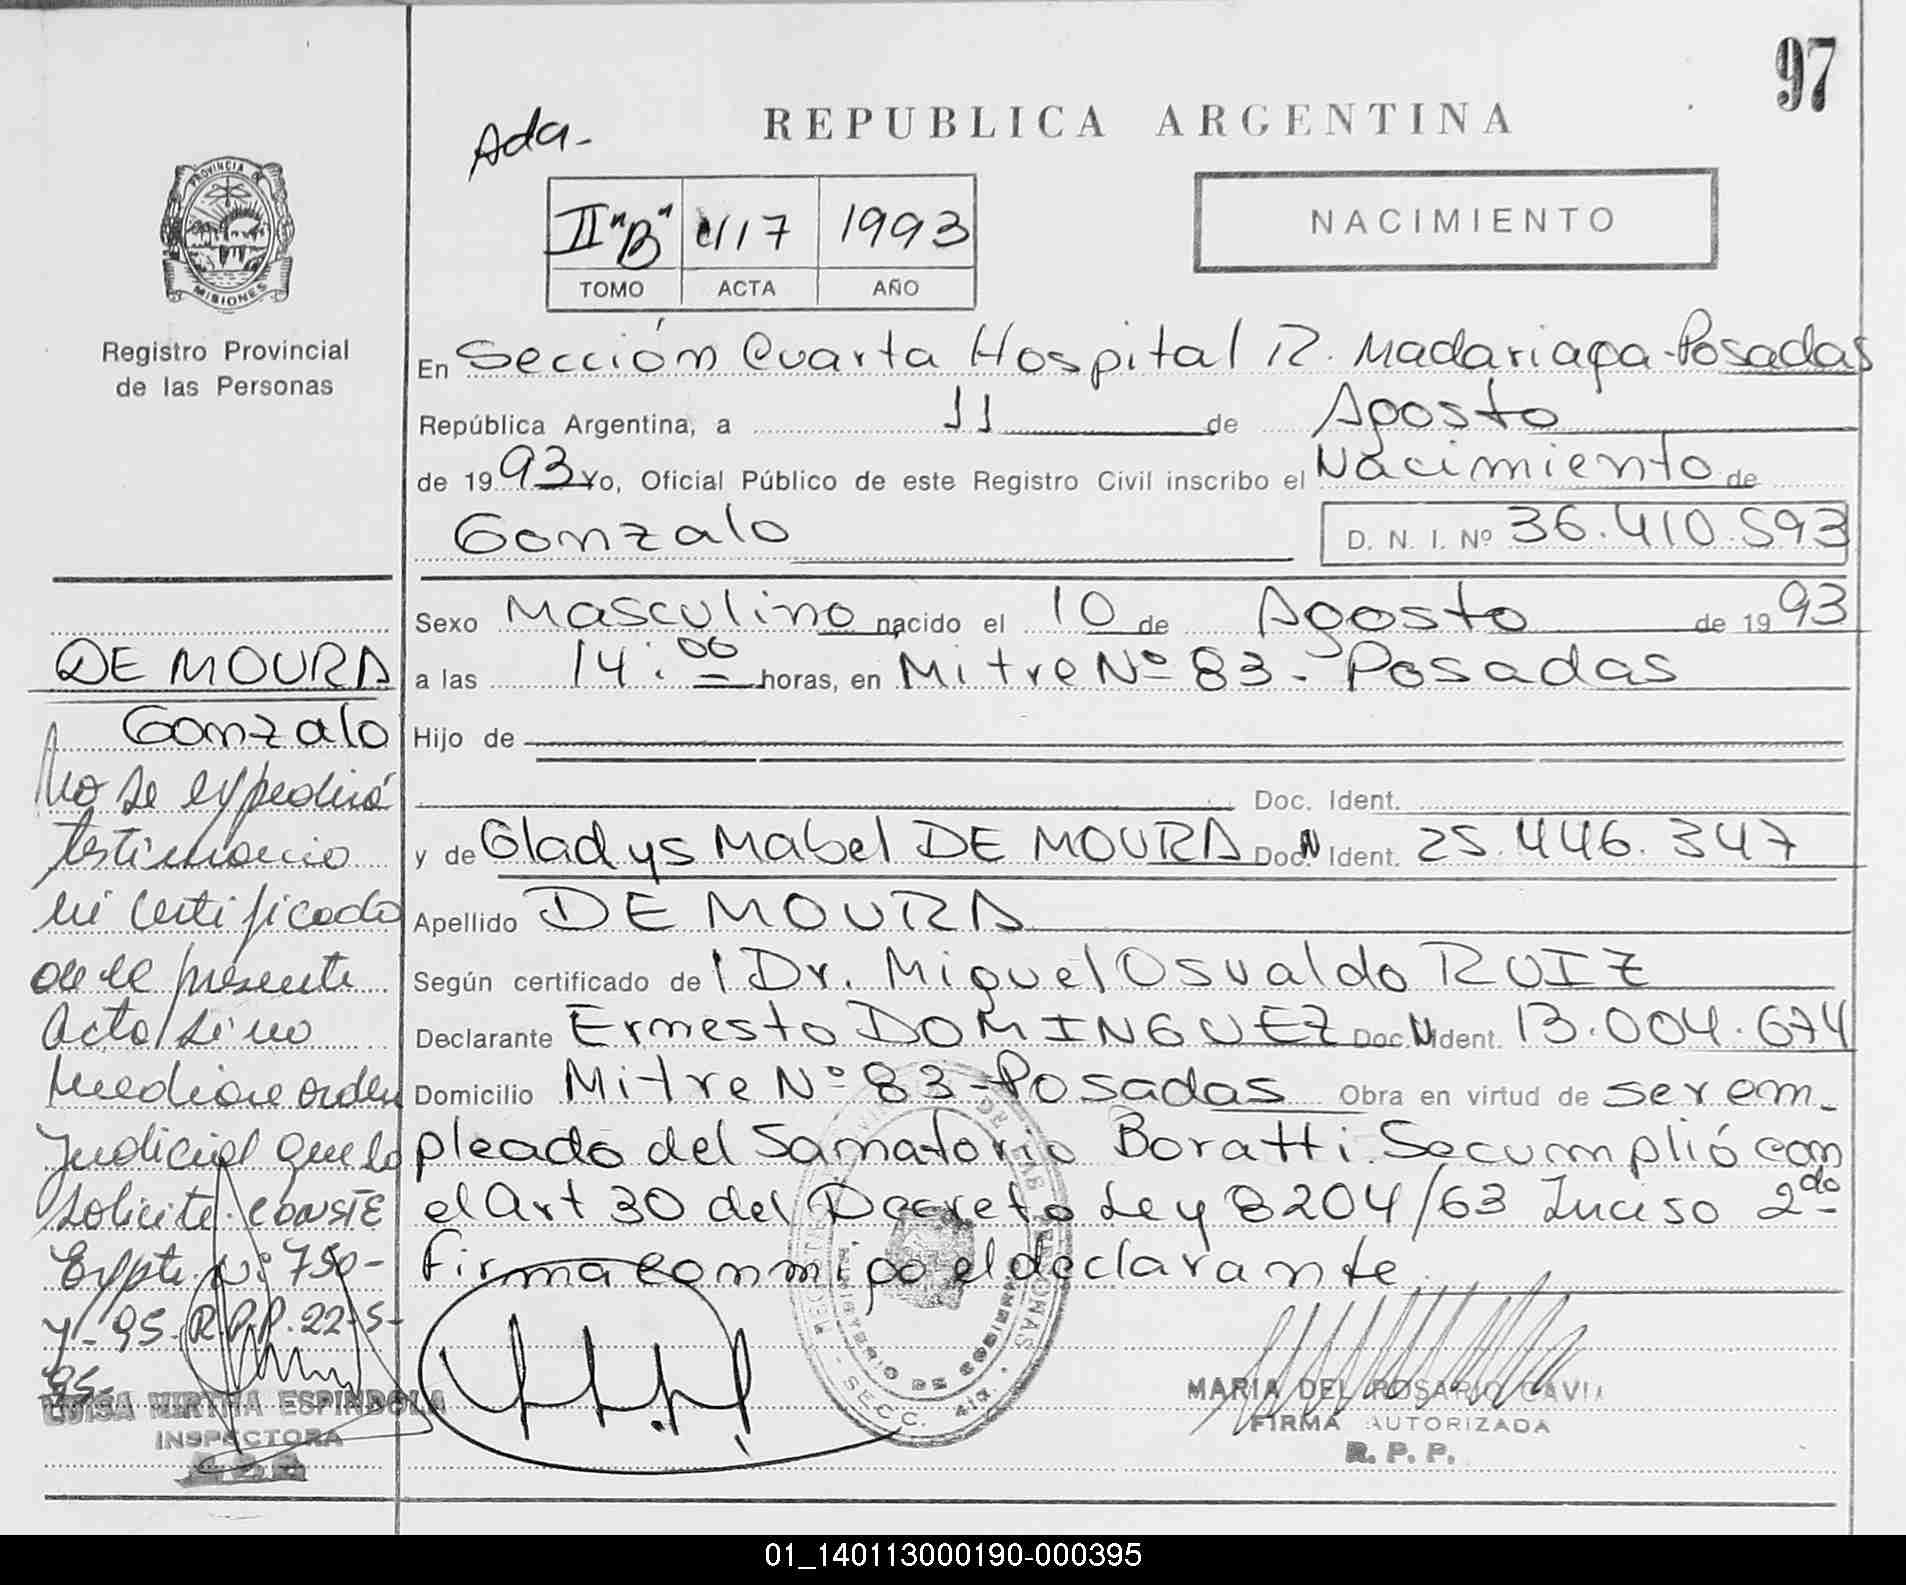 97
Ada-
REPUBLICA ARGENTINA
PROVINCIA DE
MISIONES
II "B" 1117 1993
TOMO ACTA AÑO
NACIMIENTO
Registro Provincial
de las Personas
En Sección Cuarta Hospital R. Madariaga-Posadas
República Argentina, a 11 de Agosto
de 1993 Yo, Oficial Público de este Registro Civil inscribo el Nacimiento de
Gonzalo D. N. I. Nº 36.410.593
Sexo Masculino nacido el 10 de Agosto de 1993
a las 14:00 horas, en Mitre Nº 83 - Posadas
Hijo de
Doc. Ident.
y de Gladys Mabel DE MOURA Doc. N Ident. 25.446.347
Apellido DE MOURA
Según certificado de l Dr. Miguel Osvaldo RUIZ
Declarante Ernesto DOMINGUEZ Doc. N Ident. 13.004.674
Domicilio Mitre Nº 83-Posadas Obra en virtud de ser em-
pleado del Sanatorio Boratti. Se cumplió con
el Art 30 del Decreto Ley 8204/63 Inciso 2do
firma conmigo el declarante
DE MOURA
Gonzalo
No se expedirá
testimonio
ni certificado
de la presente
acta si no
mediare orden
Judicial que lo
solicite. CONSTE
Expte. Nº 750-
Y-95. R.P.P. 22-5-
95-
LUISA MIRTHA ESPINDOLA
INSPECTORA
DE LAS PERSONAS
MINISTERIO DE GOBIERNO
SECC. 4ta.
MARIA DEL ROSARIO GAVI
FIRMA AUTORIZADA
R. P. P.
01_140113000190-000395